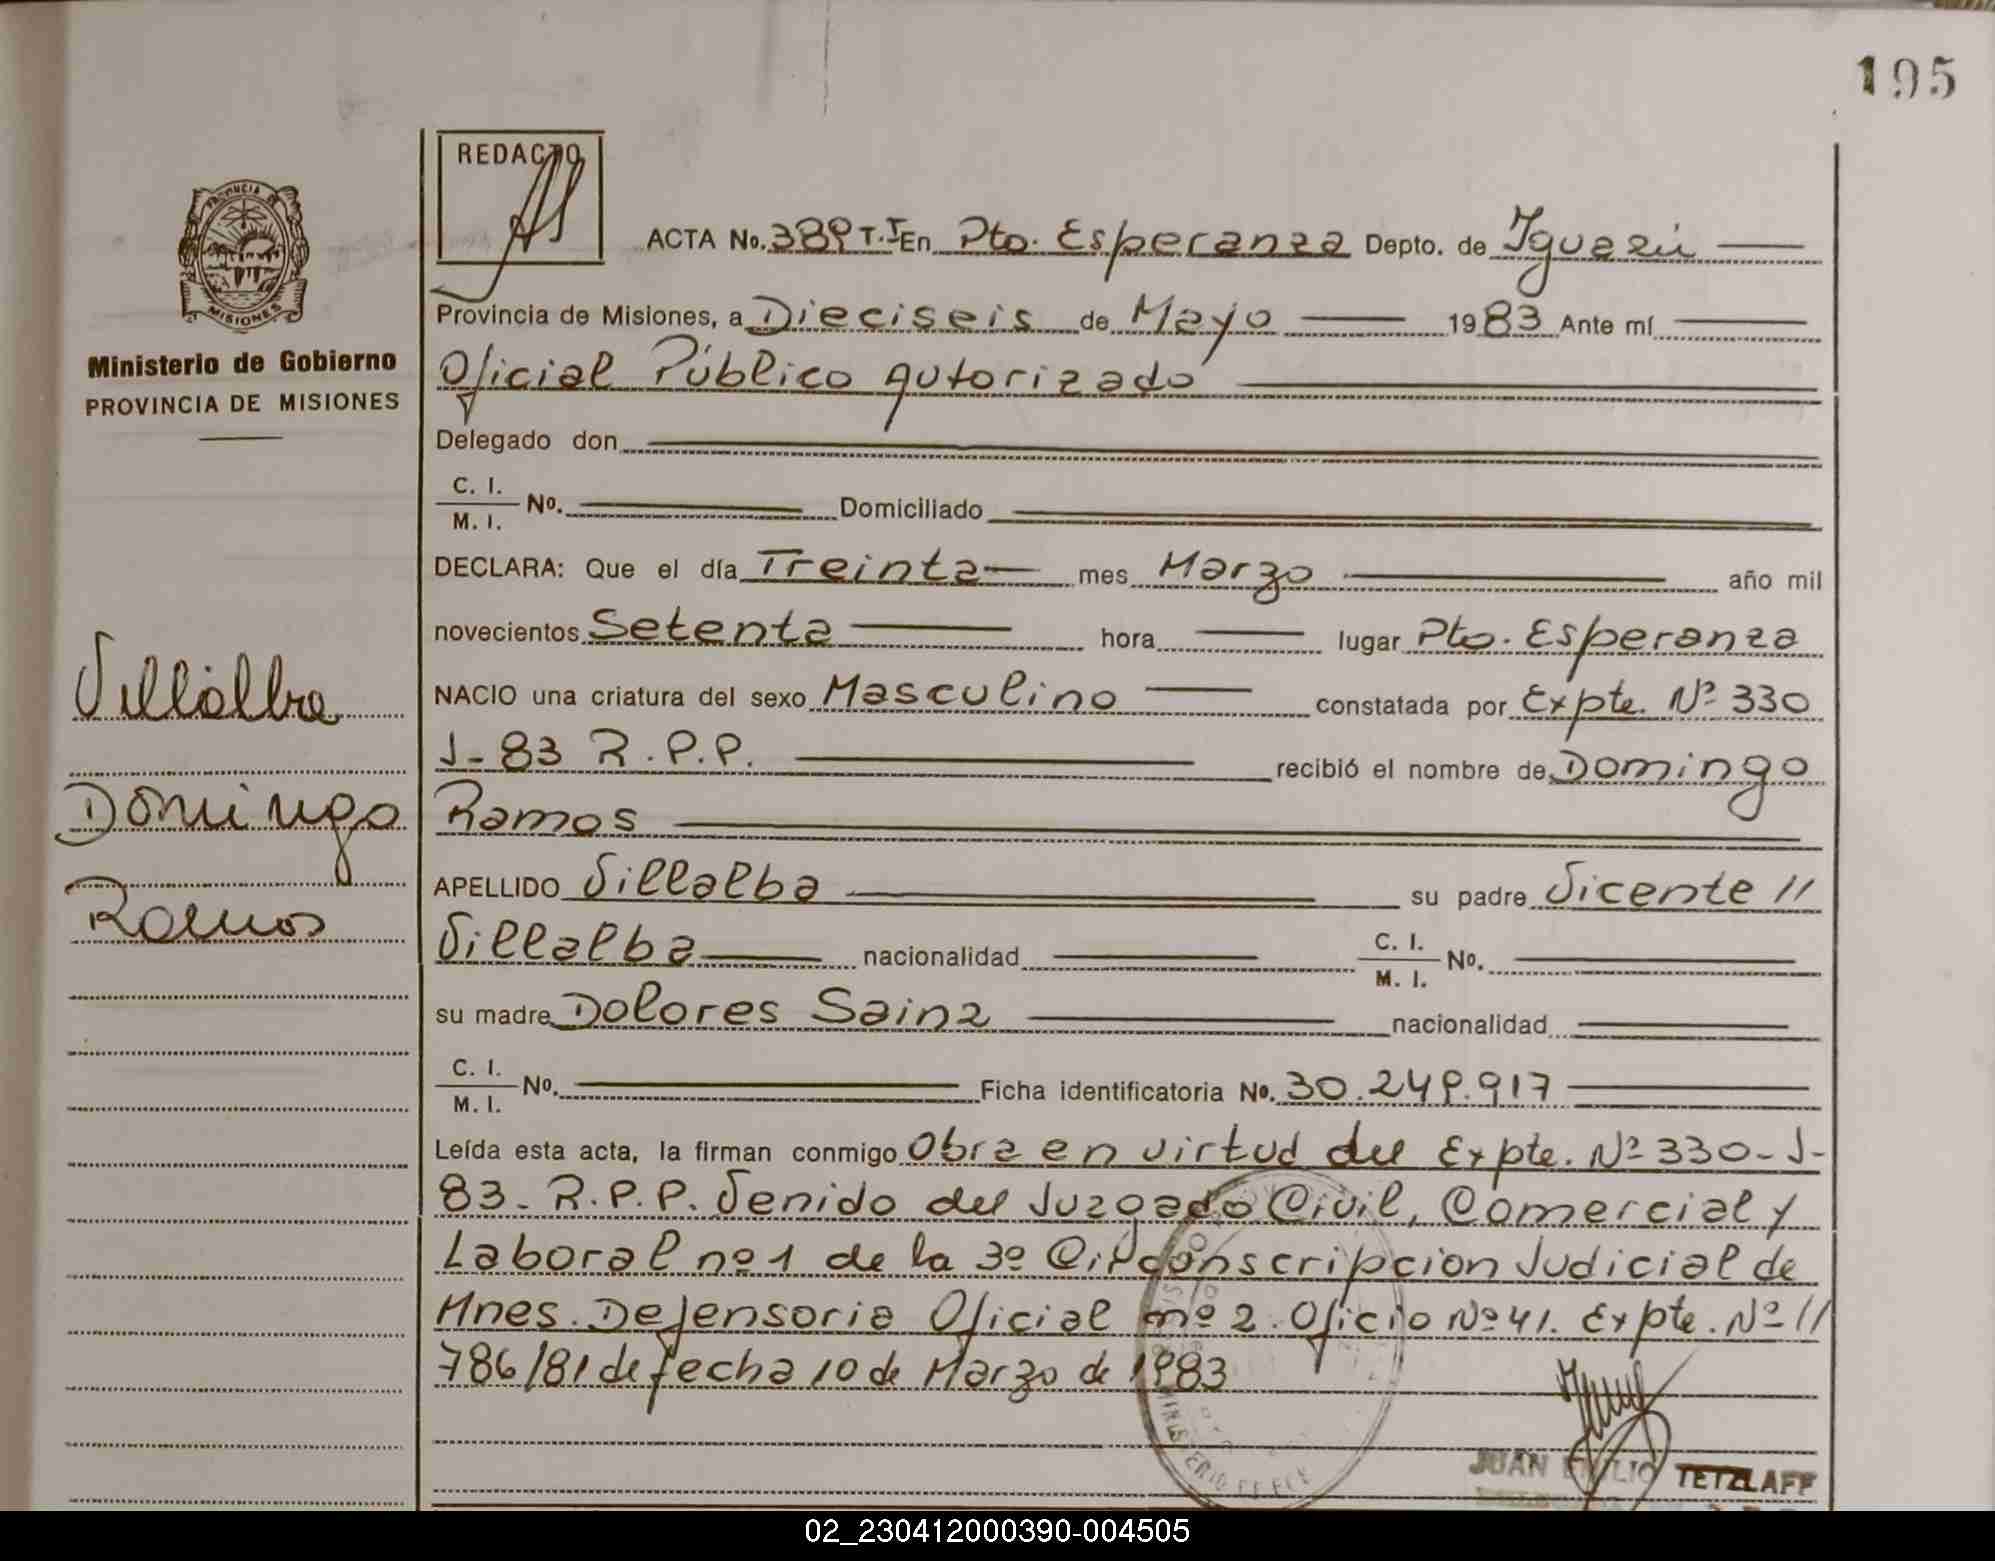 195
REDACTO
ACTA No. 389 T.I En Pto. Esperanza Depto. de Iguazú
Provincia de Misiones, a Dieciseis de Mayo 1983 Ante mí
Oficial Público autorizado
Delegado don
C. I.
M. I. No. Domiciliado
DECLARA: Que el día Treinta mes Marzo año mil
novecientos Setenta hora lugar Pto. Esperanza
NACIO una criatura del sexo Masculino constatada por Expte. Nº 330
J-83 R.P.P. recibió el nombre de Domingo
Ramos
APELLIDO Villalba su padre Vicente //
Villalba nacionalidad C. I.
M. I. No.
su madre Dolores Sainz nacionalidad
C. I.
M. I. No. Ficha identificatoria No. 30.249.917
Leída esta acta, la firman conmigo Obra en virtud del Expte. Nº 330-J-
83-R.P.P. Venido del Juzgado Civil, Comercial y
Laboral nº 1 de la 3º Circonscripcion Judicial de
Mnes. Defensoria Oficial nº 2. Oficio Nº 41. Expte. Nº //
786/81 de fecha 10 de Marzo de 1983
JUAN EMILIO TETZLAFF
PROVINCIA DE
MISIONES
Ministerio de Gobierno
PROVINCIA DE MISIONES
Villalba
Domingo
Ramos
02_230412000390-004505